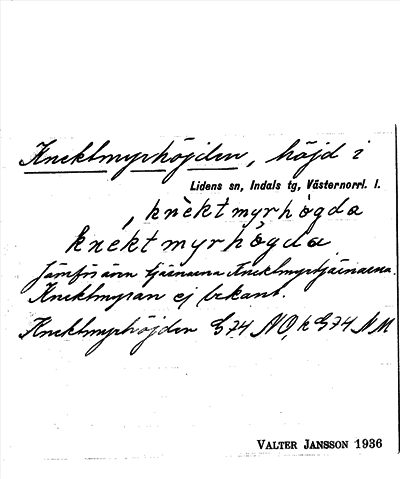 Knektmyrhöjden, höjd i
Lidens sn, Indals tg, Västernorrl. l.
, knèktmyrhògda
knéktmyrhǫ̀gda
Jämför även tjärnarna Knektmyrtjärnarna.
Knektmyran ej bekant.
Knektmyrhöjden G74 NO, k G74 NM
VALTER JANSSON 1936